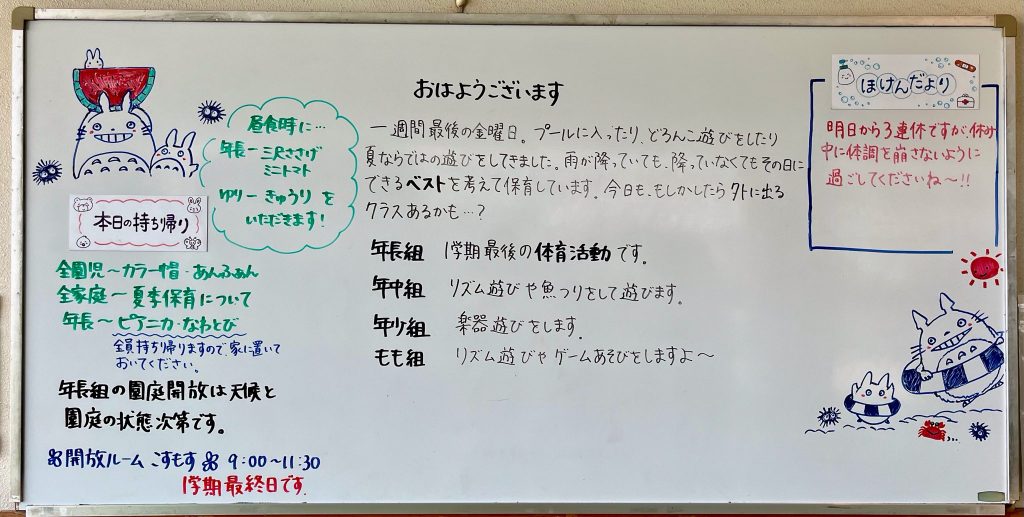 おはようございます
一週間最後の金曜日。プールに入ったり、どろんこ遊びをしたり
夏ならではの遊びをしてきました。雨が降っていても、降っていなくてもその日に
できるベストを考えて保育しています。今日も、もしかしたら外に出る
クラスあるかも…?
年長組 1学期最後の体育活動です。
年中組 リズム遊びや魚つりをして遊びます。
年少組 楽器遊びをします。
もも組 リズム遊びやゲームあそびをしますよ〜
昼食時に…
年長ー三尺ささげ
ミニトマト
ゆりーきゅうりを
いただきます!
本日の持ち帰り
全園児〜カラー帽・あんふぁん
全家庭〜夏季保育について
年長〜ピアニカ・なわとび
全員持ち帰りますので、家に置いて
おいてください。
年長組の園庭開放は天候と
園庭の状態次第です。
開放ルーム こすもす 9:00〜11:30
1学期最終日です。
ほけんだより
明日から3連休ですが、休み
中に体調を崩さないように
過ごしてくださいね〜!!